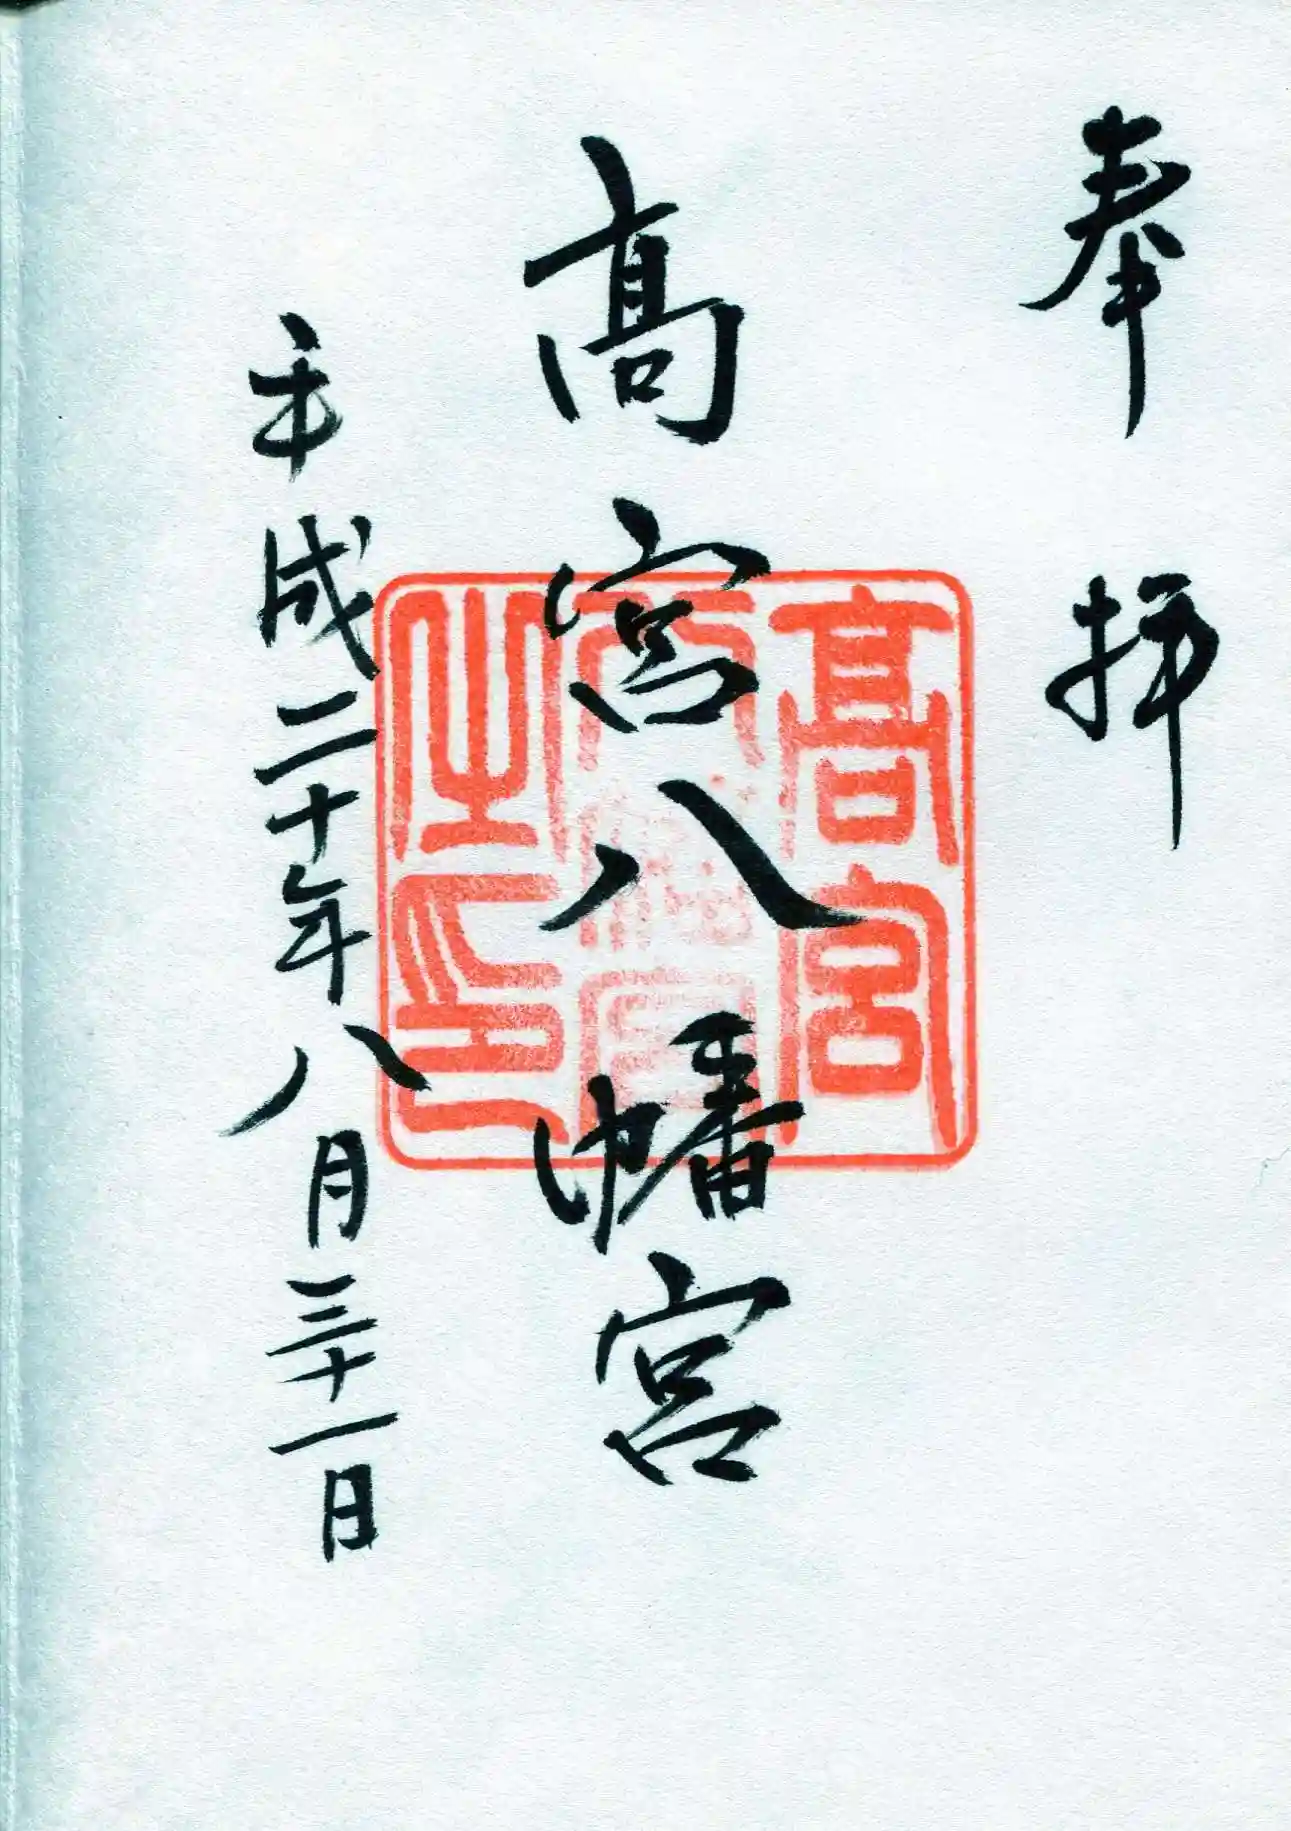 奉拝
髙宮八幡宮
平成二十年八月三十一日
髙宮
八幡宮
之印